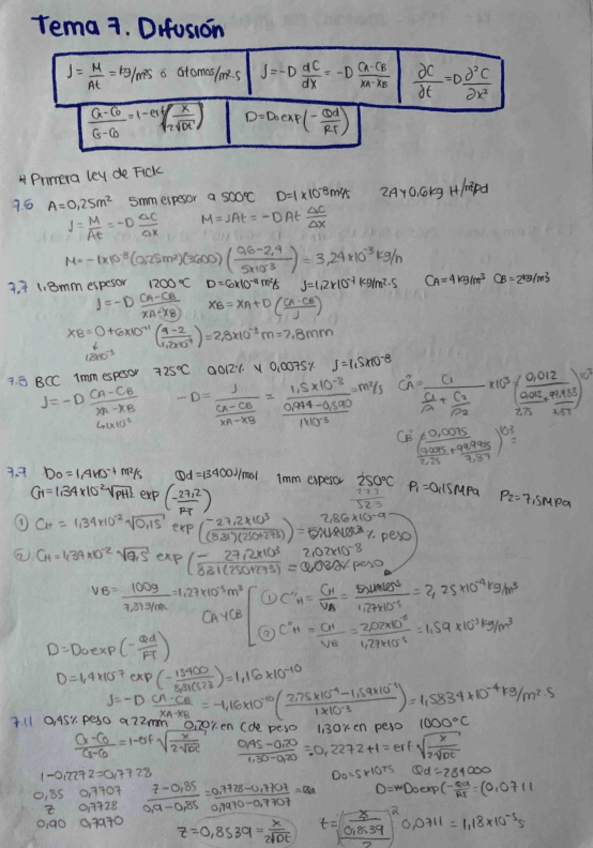 Tema 7. Difusión
J = M/At = kg/m²s ó átomos/m².s
J = -D dC/dx = -D CA-CB/XA-XB
∂C/∂t = D ∂²C/∂x²
Cx-Co/Cs-Co = 1-erf(x/2√Dt)
D = Do exp(-Qd/RT)
Primera Ley de Fick
7.6 A=0,25m² 5mm espesor a 500ºC D=1x10⁻⁸m²/s 2,4 y 0,6 kg H/m³Pd
J = M/At = -D ΔC/Δx M = JAt = -DAt ΔC/Δx
M = -1x10⁻⁸(0,25m²)(3600)(0,6-2,4/5x10⁻³) = 3,24x10⁻³kg/h
7,7 1,8mm espesor 1200ºC D=6x10⁻¹¹m²/s J=1,2x10⁻⁷kg/m².s CA=4kg/m³ CB=2kg/m³
J = -D CA-CB/XA-XB XB = XA+D(CA-CB/J)
XB = 0+6x10⁻¹¹(4-2/1,2x10⁻⁷) = 2,8x10⁻³m = 2,8mm
1,8x10⁻³
7.8 BCC 1mm espesor 725ºC 0,012% y 0,0075% J=1,5x10⁻⁸
J = -D CA-CB/XA-XB -D = J/(CA-CB/XA-XB) = 1,5x10⁻⁸/(0,944-0,590/1x10⁻³) = m²/s
CA" = C1/(C1/ρ1 + C2/ρ2) x10³
7.9 Do=1,4x10⁻⁷m²/s Qd=13400J/mol 1mm espesor 250ºC P1=0,15MPa P2=7,5MPa
273
523
CH=1,34x10⁻²√PH2 exp(-27,2/RT)
① CH = 1,34x10⁻²√0,15 exp(-27,2x10³/(8,31)(250+273)) = % peso
2,86x10⁻⁹
② CH = 1,34x10⁻²√7,5 exp(-27,2x10³/8,31(250+273)) = % peso
2,02x10⁻⁸
VB = 100g = 1,27x10⁻⁵m³
CA y CB
① C"H = CH/VB = /1,27x10⁻⁵ = 2,25x10⁻⁴kg/m³
② C"H = CH/VB = 2,02x10⁻⁸/1,27x10⁻⁵ = 1,59x10⁻³kg/m³
D = Do exp(-Qd/RT)
D = 1,4x10⁻⁷ exp(-13400/8,31(523)) = 1,16x10⁻¹⁰
J = -D CA-CB/XA-XB = -1,16x10⁻¹⁰(2,25x10⁻⁴-1,59x10⁻³/1x10⁻³) = 1,5834x10⁻⁴kg/m².s
7.11 0,45% peso a 22mm 0,20% en C de peso 1,30% en peso 1000ºC
Cx-Co/Cs-Co = 1-erf√(x/2√Dt) 0,45-0,20/1,30-0,20 = 0,2272+1 = erf√(x/2√Dt)
1-0,2272=0,7728 Do=5x10⁻⁵ Qd=284000
0,85 0,7707
z 0,7728
0,90 0,7970
z-0,85/0,9-0,85 = 0,7728-0,7707/0,7970-0,7707
D = Do exp(-Qd/RT) = (0,0711
z = 0,8539 = x/2√Dt
t = (x/0,8539/2)² 0,0711 = 1,18x10⁻⁵s